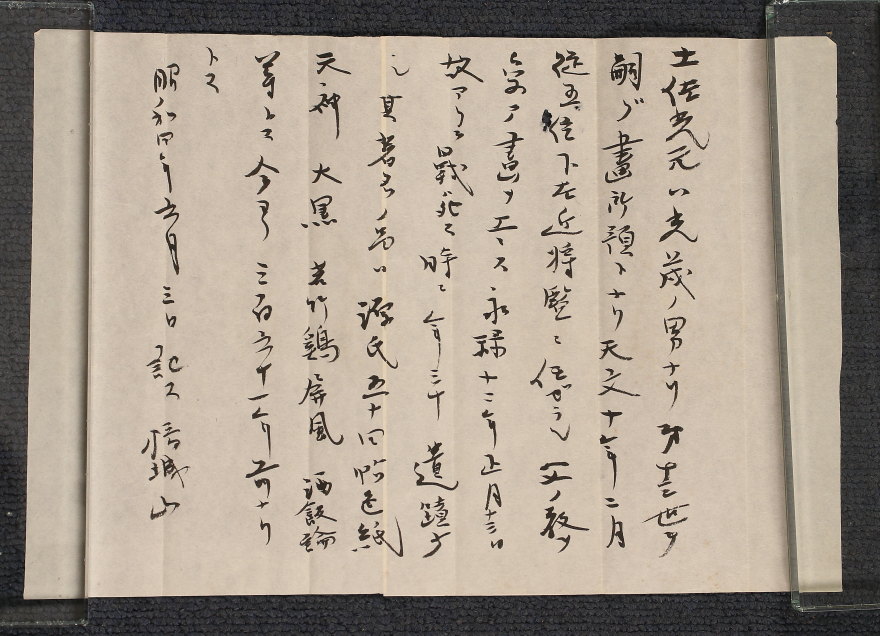 土佐光元ハ光茂ノ男ナリ 第十三世ヲ
嗣グ 画所預トナリ天文十年二月
従五位下左近将監ニ任ゼラル 父ノ教ヲ
受ケ画ヲエニス 永禄十二年正月十三日
故アリテ戦死ス 時ニ年三十 遺蹟少
シ 其著名ノ品ハ 源氏五十四帖色紙
天神 大黒 若竹鶏屏風 酒飯論
等トス 今ヨリ 三百五十一年前ナリ
トス
昭和四年五月三日 記ス